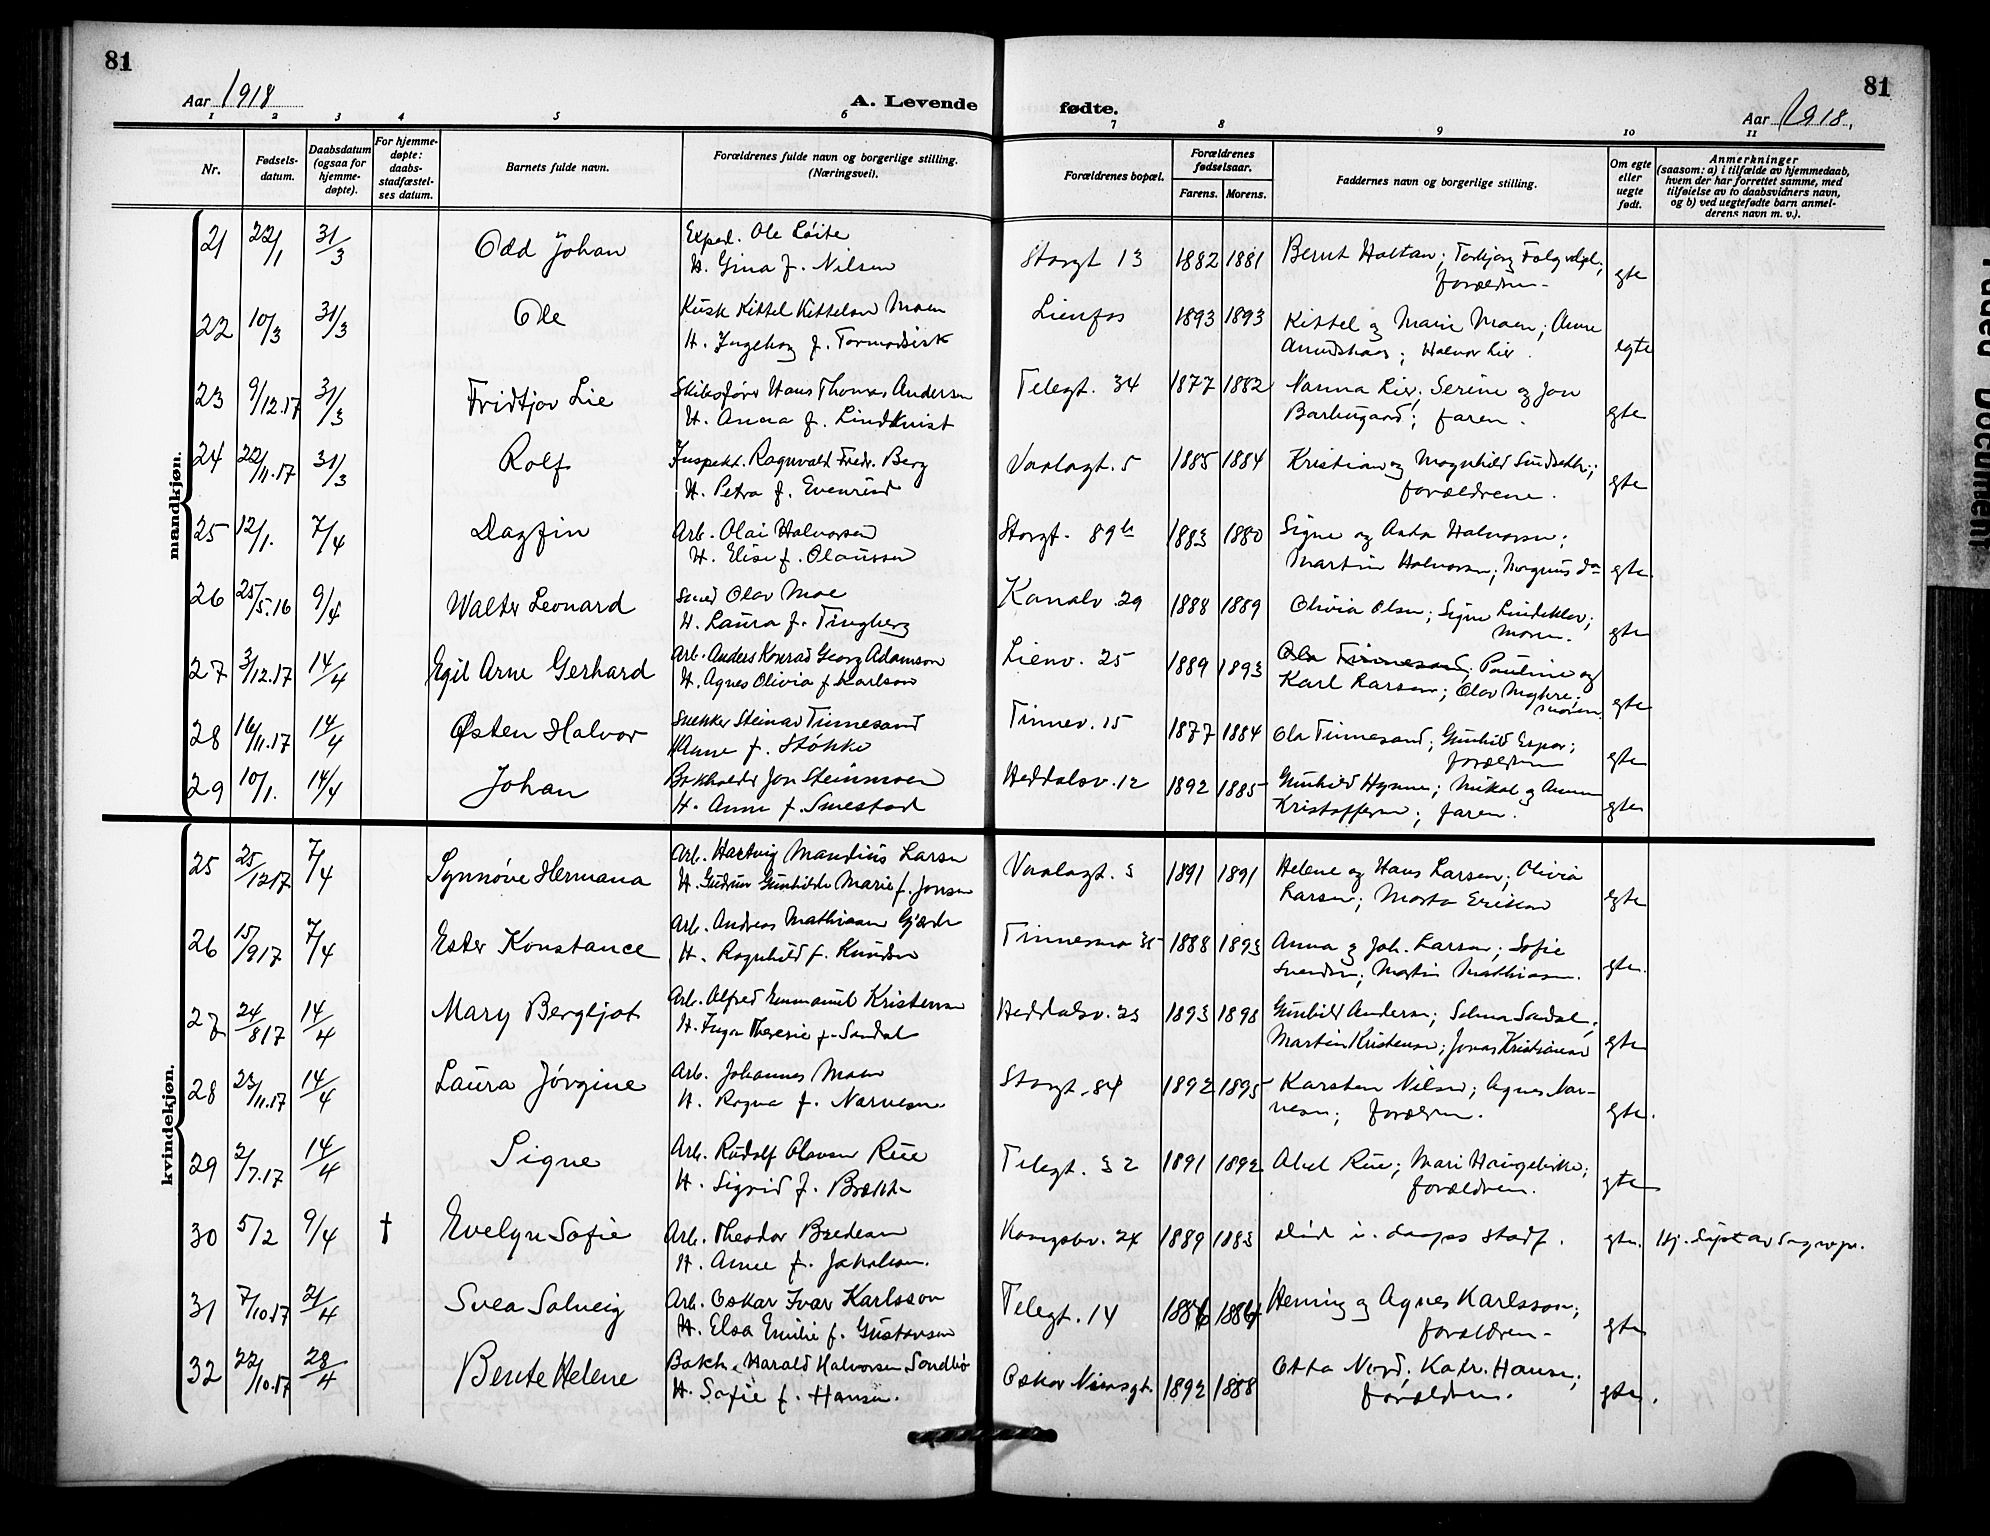 81
81
Aar 1918
A. Levende
fødte.
Aar 1918.
1 2 3 4 5 6 7 8 9 10 11
Nr.
Fødsels-
datum.
Daabsdatum
(ogsaa for
hjemme-
døpte).
For hjemme-
døpte:
daabs-
stadfæstel-
ses datum.
Barnets fulde navn.
Forældrenes fulde navn og borgerlige stilling.
(Næringsvei).
Forældrenes bopæl.
Forældrenes
fødselsaar.
Farens. Morens.
Faddernes navn og borgerlige stilling.
Om egte
eller
uegte
født.
Anmerkninger
(saasom: a) i tilfælde av hjemmedaab,
hvem der har forrettet samme, med
tilføielse av to daabsvidners navn,
og b) ved uegtefødte barn anmel-
derens navn m. v.).
mandkjøn.
21 22/1 31/3 Odd Johan Exped. Ole Løite Storgt 13 1882 1881 Bernt Holtan;
H. Gina f. Nilsen forældren egte
22 10/3 31/3 Ole Kusk Kittel Kittelsen Moen Lienfos 1893 1893 Kittel og Marie Moen; Anne
H. Ingeborg f. Halvor Lier. egte
23 9/12.17 31/3 Fridtjov Lie Skibsfører Hans Thomas Andersen Telegt. 34 1877 1882 Nanna Lie; Serine og Jon
H. Anna f. Lindkvist faren. egte
24 22/11.17 31/3 Rolf Inspekt. Ragnvald Fredr. Berg Vaalagt. 5 1885 1884 Kristian og Magnhild
H. Petra f. Evenrud forældrene. egte
25 12/1. 7/4 Dagfin Arb. Olai Halvorsen Storgt. 89b 1883 1880 Signe og Asta Halvorsen;
H. Elise f. Olaussen Martin Halvorsen; Magnus do egte.
26 25/5.16 9/4 Walter Leonard Smed Olav Moe Kanalv. 29 1888 1889 Olivia Olsen; Signe
H. Laura f. Tingberg moren. egte
27 3/12.17 14/4 Egil Arne Gerhard Arb. Anders Konrad Georg Adamson Lienv. 25 1889 1893 Ola Tinnesand; Pauline og
H. Agnes Olivia f. Karlson Karl Larsen; Olav moren. egte
28 16/11.17 14/4 Østen Halvor Snekker Steinar Tinnesand Tinnev. 15 1877 1884 Ola Tinnesand; Gunhild
H. Anne f. Støkke forældren egte
29 10/1. 14/4 Johan Bokholder Jon Steinmoen Heddalsv. 12 1892 1885 Gunhild Mikal og Anna
H. Anne f. Smestad Kristoffersen; faren. egte
kvindekjøn.
25 25/12 17 7/4 Synnøve Hermana Arb. Hartvig Mandius Larsen Vaalagt. 3 1891 1891 Helene og Hans Larsen; Olivia
H. Gudrun Gunhilde Marie f. Jonsen Larsen; Marta Erikson egte
26 15/9 17 7/4 Ester Konstance Arb. Andreas Mathiasen 1888 1893 Anna og Joh. Larsen; Sofie
H. Ragnhild f. Knudsen Svendsen; Martin Mathiasen. egte.
27 24/8 17 14/4 Mary Bergljot Arb. Alfred Emmanuel Kristensen Heddalsv. 23 1893 1898 Gunhild Andersen; Selma Sandal;
H. Inga Theresie f. Sandal Martin Kristensen; Jonas Kristiansen egte
28 23/11.17 14/4 Laura Jørgine Arb. Johannes Moen Storgt. 84 1892 1895 Karsten Nilsen; Agnes Nar-
H. Ragna f. Narvesen vesen; forældren. egte.
29 2/7.17 14/4 Signe Arb. Rudolf Olavsen Rue Telegt. 32 1891 1892 Abel Rue; Mari
H. Sigrid f. Brække forældren. egte
30 5/2 9/4 † Evelyn Sofie Arb. Theodor Bredesen Kongsbv. 24 1889 1883 død i. daaps stadf. egte. Hj. døpt av
H. Anne f. Jakobsen.
31 7/10.17 21/4 Svea Solveig Arb. Oskar Ivar Karlsson Telegt. 14 1886 1884 Henning og Agnes Karlsson;
H. Elsa Emilie f. Gustavsen forældren egte
32 22/10.17 28/4 Bente Helene Harald Halvorsen Sandbø Oskar 1892 1888 Otto Nord; Katr. Hansen;
H. Sofie f. Hansen. forældren. egte.